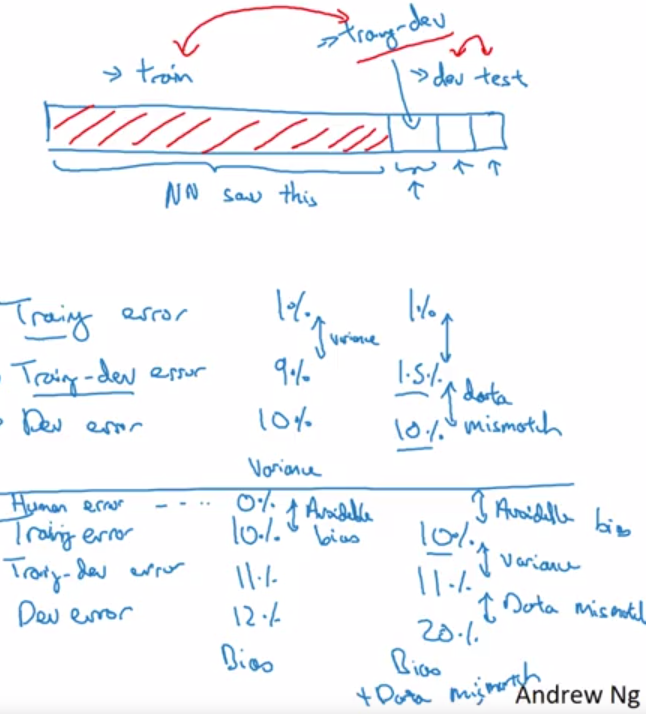 → train
→ traing-dev
→ dev test
NN saw this
Traing error 1% 1%
variance
Traing-dev error 9% 1.5%
data
mismatch
Dev error 10% 10%
Variance
Human error 0% Avoidable bias Avoidable bias
Traing error 10% 10%
Variance
Traing-dev error 11% 11%
Data mismatch
Dev error 12% 20%
Bias Bias
+ Data mismatch
Andrew Ng